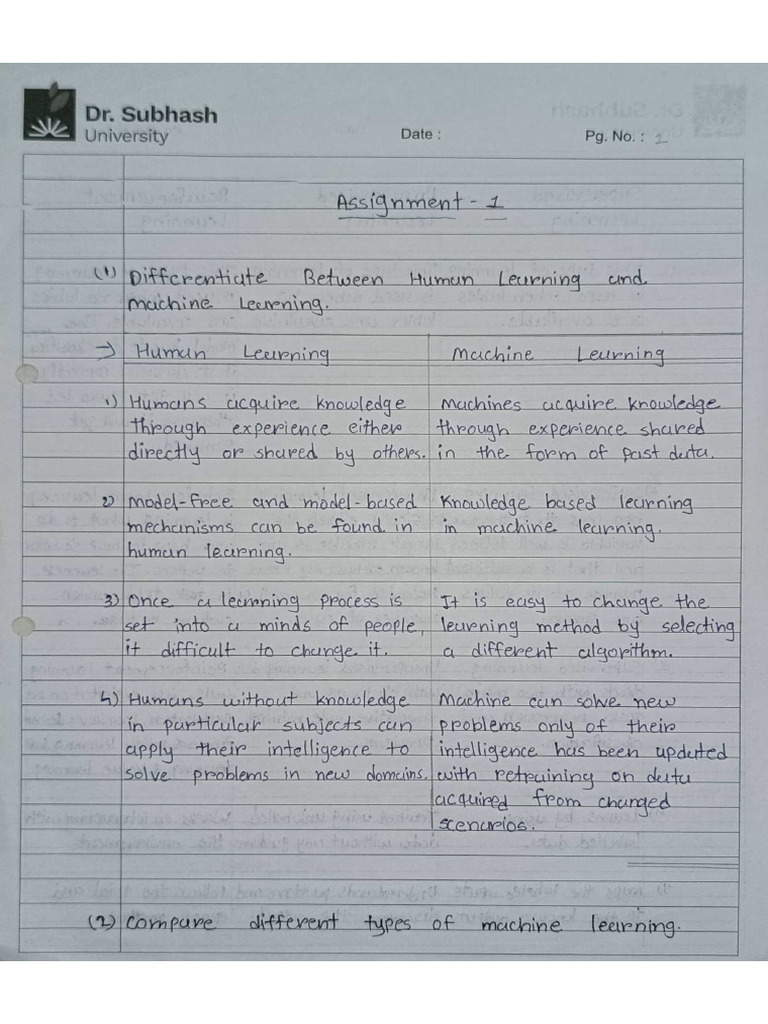 Dr. Subhash
University
Date :
Pg. No. : 1
Assignment - 1
(1) Differentiate Between Human Learning and
machine Learning.
→ Human Learning Machine Learning
1) Humans acquire knowledge Machines acquire knowledge
through experience either through experience shared
directly or shared by others. in the form of past data.
2) Model-free and model-based Knowledge based learning
mechanisms can be found in in machine learning.
human learning.
3) Once a learning process is It is easy to change the
set into a minds of people, learning method by selecting
it difficult to change it. a different algorithm.
4) Humans without knowledge Machine can solve new
in particular subjects can problems only of their
apply their intelligence to intelligence has been updated
solve problems in new domains. with retraining on data
acquired from changed
scenarios.
(2) Compare different types of machine learning.